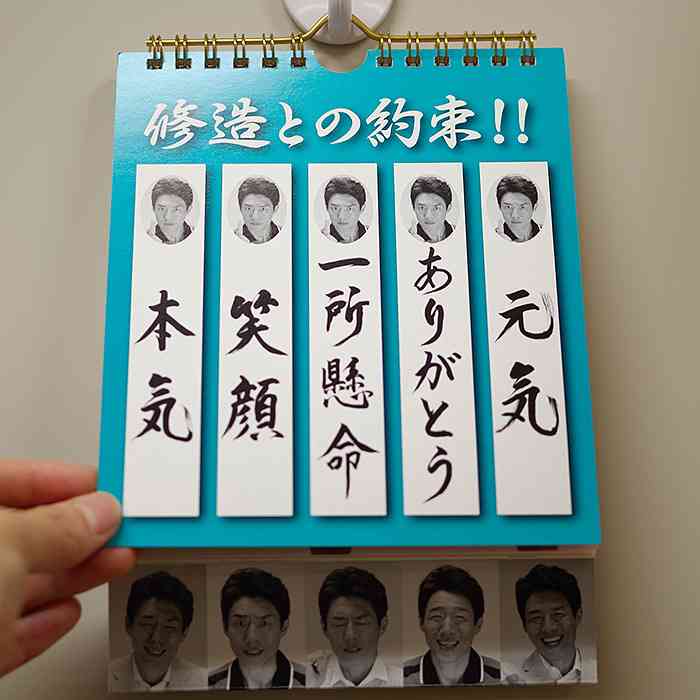 修造との約束!!
元気
ありがとう
一所懸命
笑顔
本気